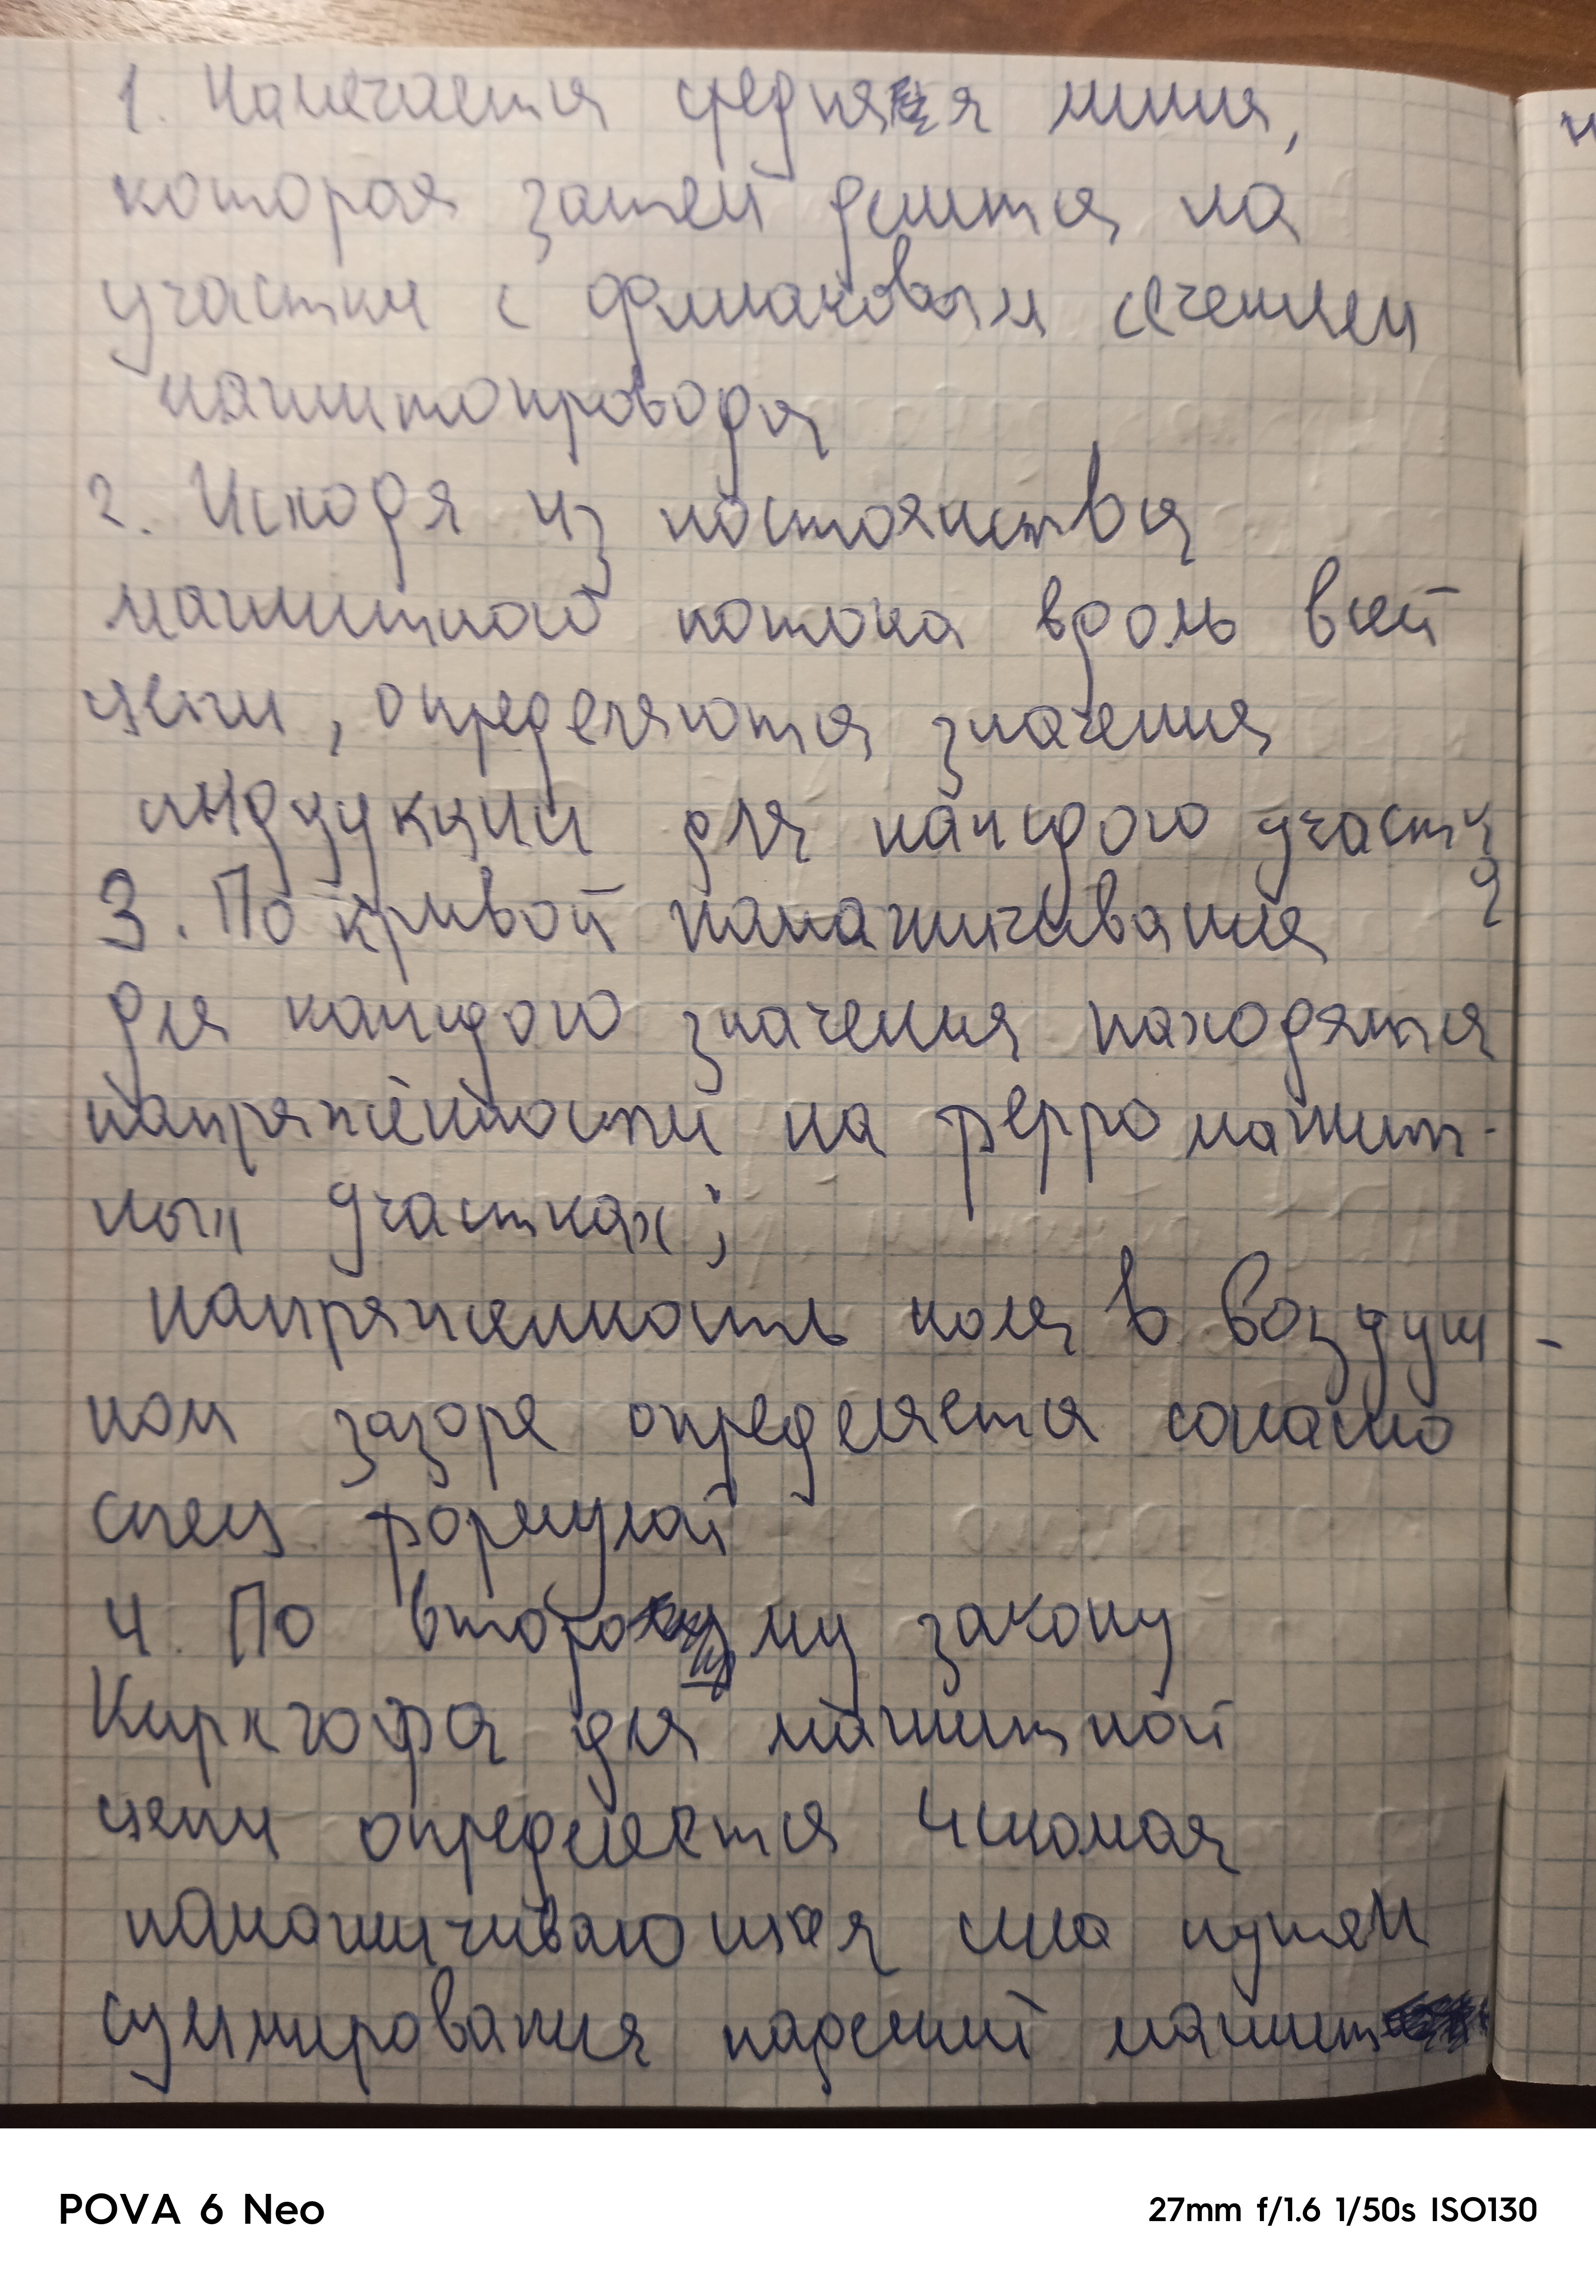 1. Намечается средняя линия,
которая затем делится на
участки с одинаковым сечением
магнитопровода
2. Исходя из постоянства
магнитного потока вдоль всей
цепи, определяются значения
индукции для каждого участк
а
3. По кривой намагничивания
для каждого значения находятся
напряжённости на ферромагнит-
ных участках;
напряженность поля в воздуш-
ном зазоре определяется согласно
спец формулой
4. По второму закону
Кирхгофа для магнитной
цепи определяется искомая
намагничивающая сила путем
суммирования падений магнит
н
POVA 6 Neo
27mm f/1.6 1/50s ISO130